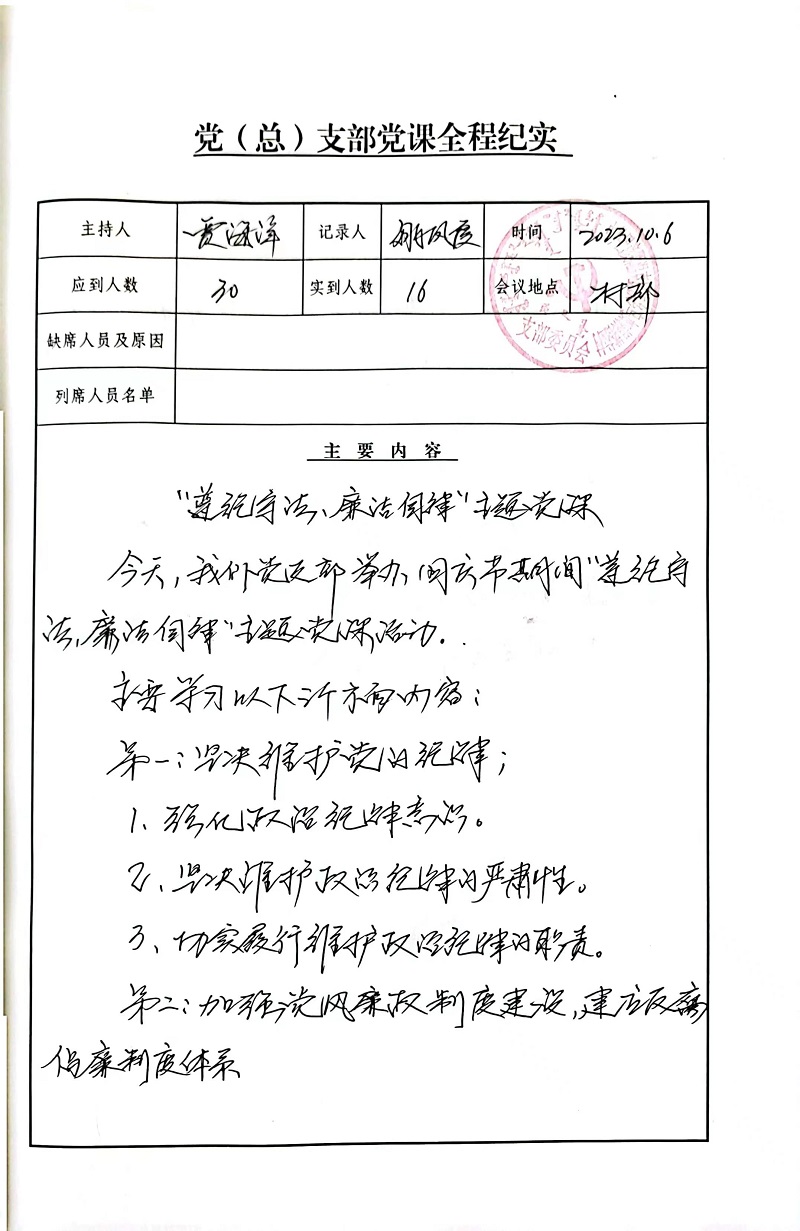 党（总）支部党课全程纪实
主持人 贾海洋 记录人 时间 2023.10.6
应到人数 30 实到人数 16 会议地点 村部
缺席人员及原因
列席人员名单
支部委员会
主要内容
“遵纪守法、廉洁自律”主题党课
今天，我们党支部举办国庆节期间“遵纪守
法、廉洁自律”主题党课活动.
主要学习以下三个方面内容：
第一：坚决维护党的纪律；
1、强化政治纪律意识。
2、坚决维护政治纪律的严肃性。
3、切实履行维护政治纪律的职责。
第二：加强党风廉政制度建设，建立反腐
倡廉制度体系